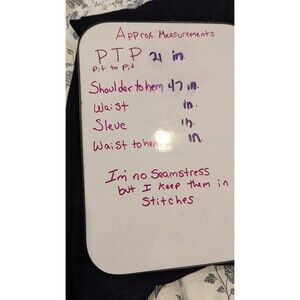 Approx Measurements
PTP 21 in.
Pit to Pit
Shoulder to hem 47 in.
Waist in.
Sleve in.
Waist to hem in.
I'm no Seamstress
but I keep them in
Stitches